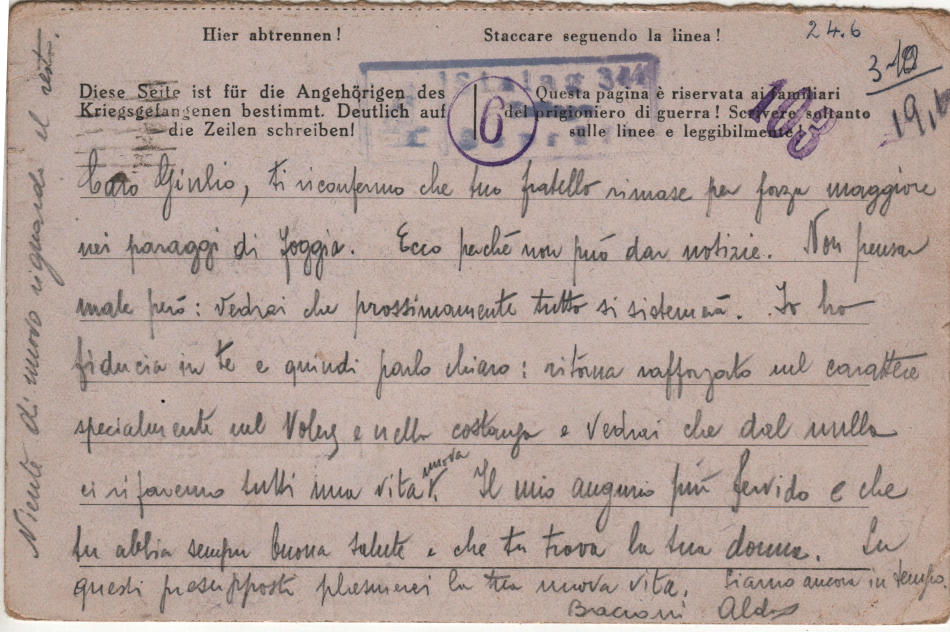 Hier abtrennen! Staccare seguendo la linea!
24.6
Diese Seite ist für die Angehörigen des
Kriegsgefangenen bestimmt. Deutlich auf
die Zeilen schreiben!
Stalag 344
6
Questa pagina è riservata ai familiari
del prigioniero di guerra! Scrivere soltanto
sulle linee e leggibilmente!
Caro Giulio, ti riconfermo che tuo fratello rimase per forza maggiore
nei paraggi di Foggia. Ecco perchè non può dar notizie. Non pensar
male però: vedrai che prossimamente tutto si sistemerà. Io ho
fiducia in te e quindi parlo chiaro: ritorna rafforzato nel carattere
specialmente nel voler e nella costanza e vedrai che dal nulla
ci rifaremo tutti una vita nuova. Il mio augurio più fervido è che
tu abbia sempre buona salute e che tu trova la tua donna. Su
questi presupposti plasmerei la tua nuova vita. Siamo ancora in tempo.
Bacioni Aldo
Niente di nuovo riguardo il resto.